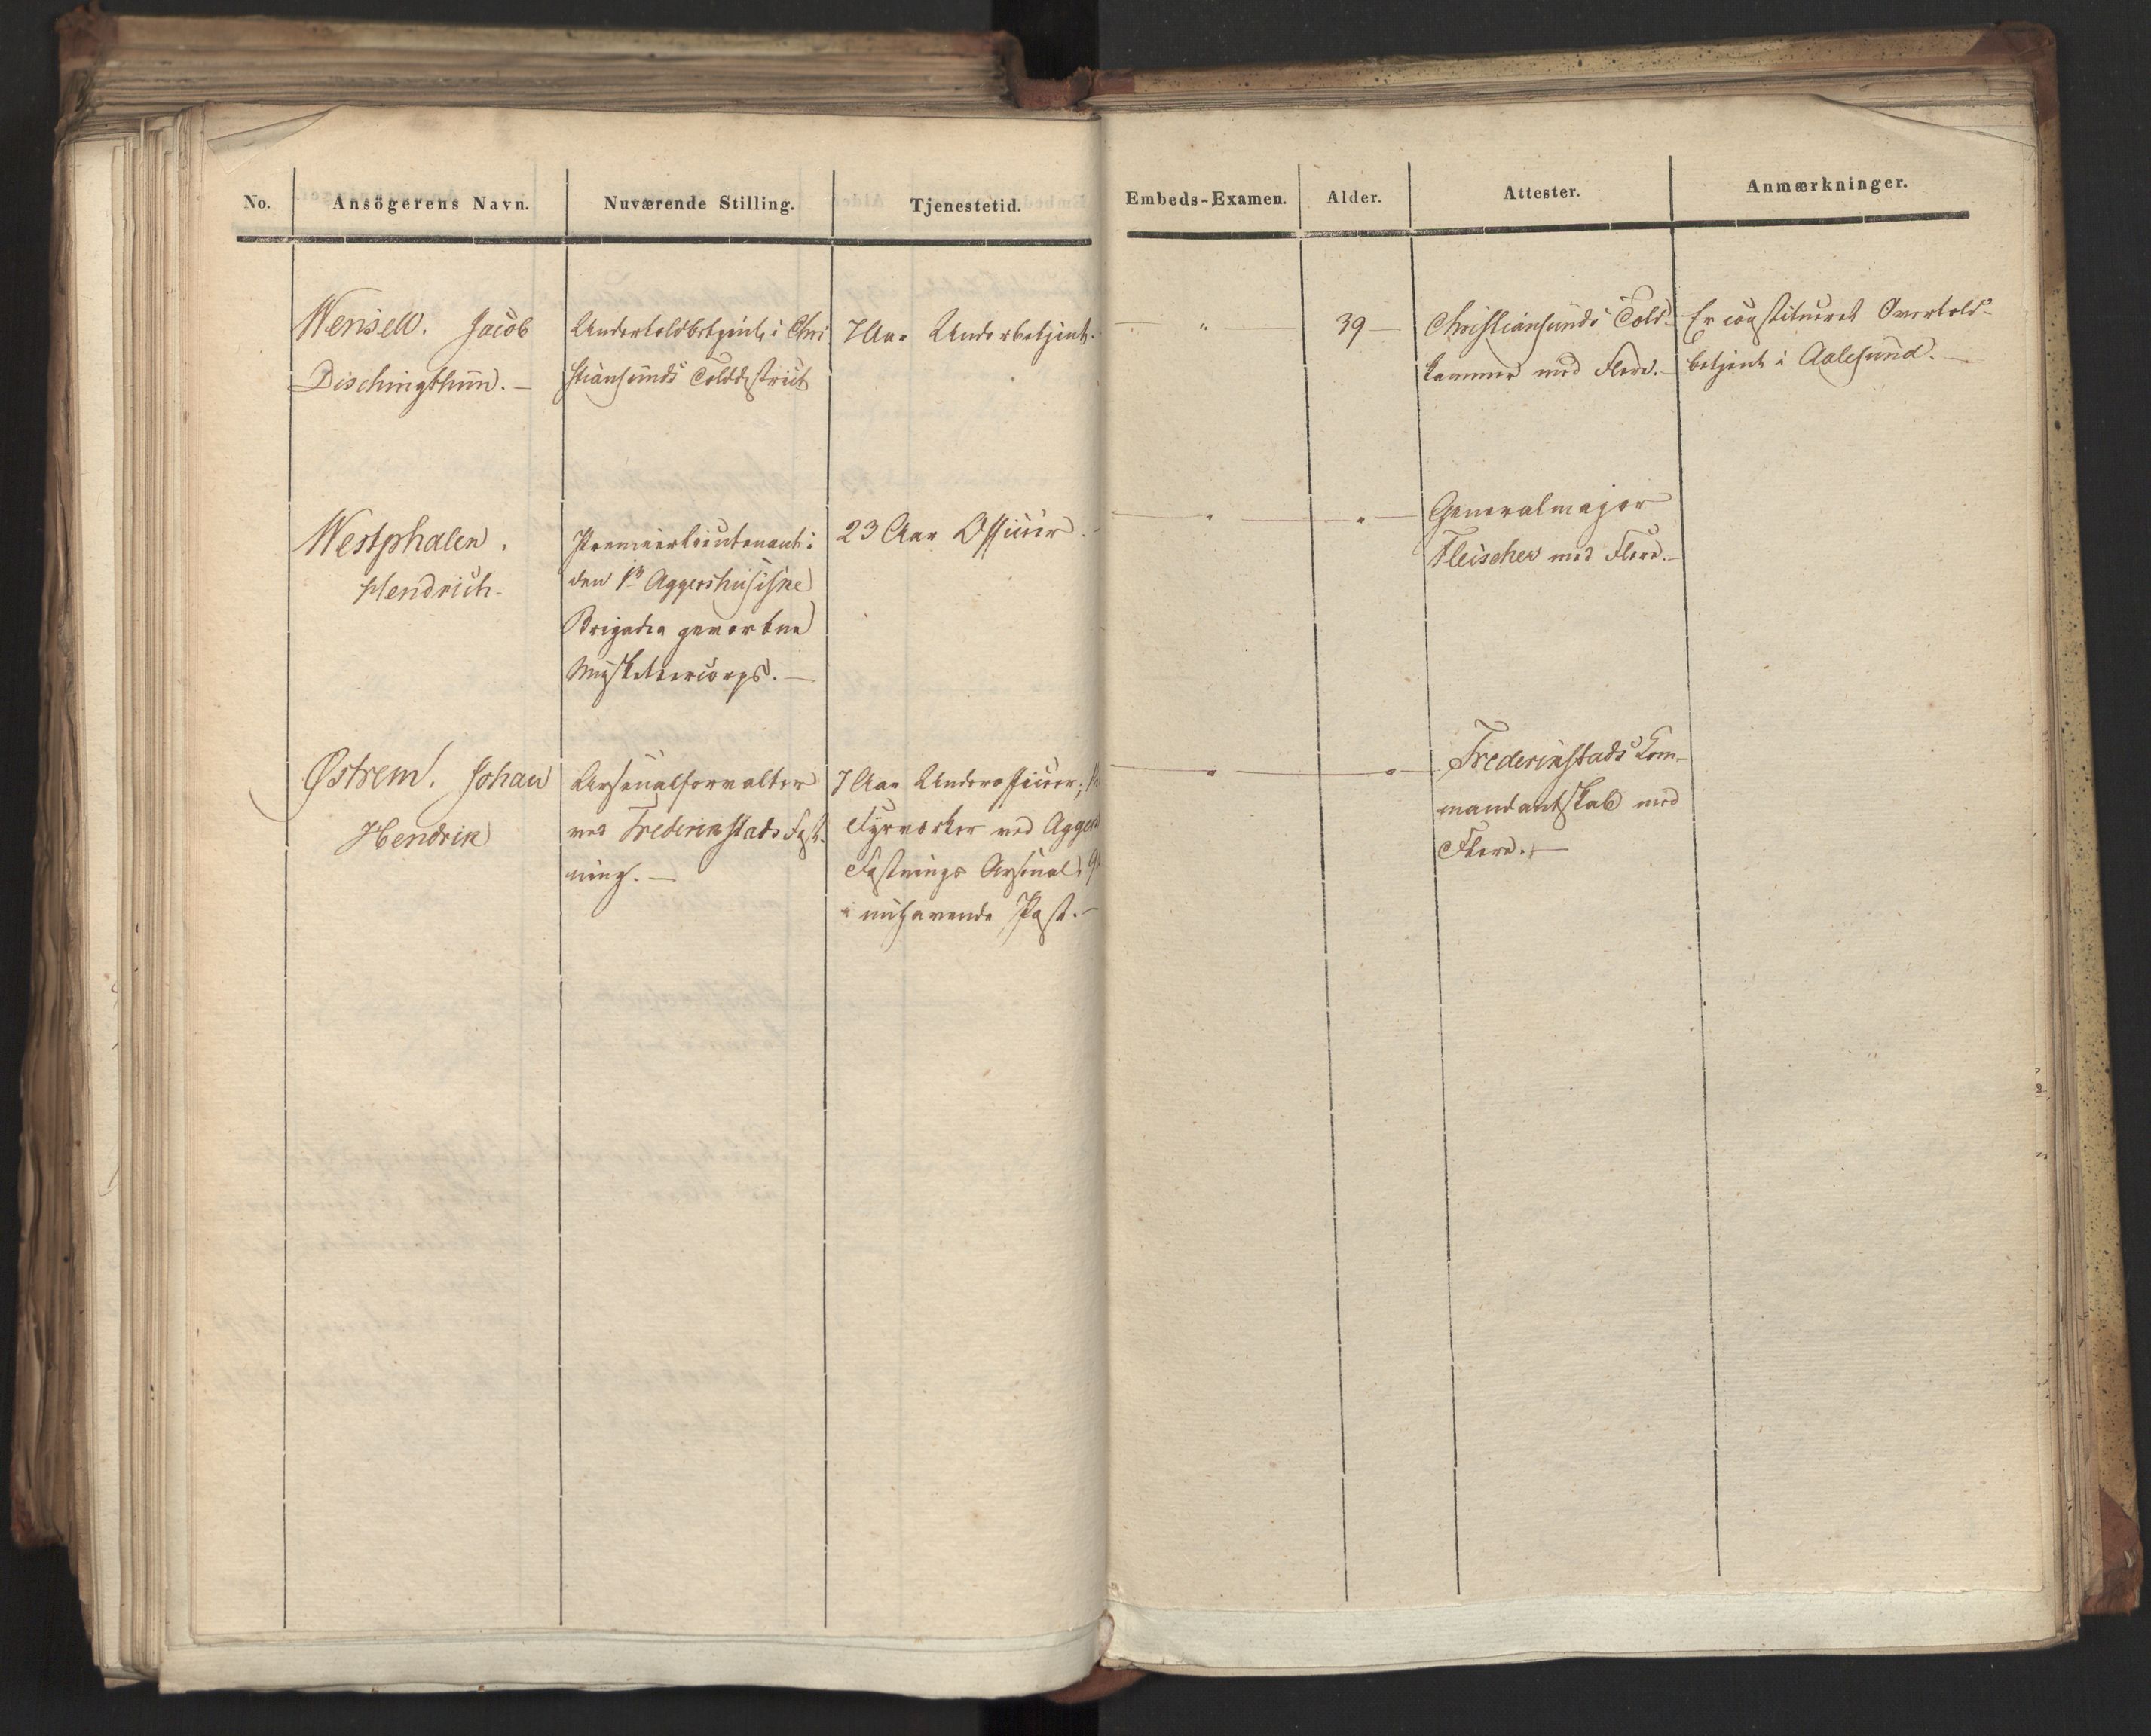 No. Ansögerens Navn. Nuværende Stilling. Tjenestetid. Embeds-Examen. Alder. Attester. Anmærkninger.
Wensell. Jacob
Dischingthun. —
Undertoldbetjent i Chri
stiansunds Tolddistrict
7 Aar Underbetjent.
— " 39 —
Christiansunds Told-
kammer med Flere. —
Er constitueret Overtold-
betjent i Aalesund. —
Westphalen.
Hendrich.
Premierlieutenant i
den 1ste Aggershusiske
Brigades gevorbne
Musketeercorps. —
23 Aar Officier. -
— " — " —
Generalmajor
Fleischer med Flere. —
Østrem. Johan
Hendrik
Arsenalforvalter
ved Frederikstads Fæst-
ning. —
7 Aar Underofficier;
Fyrverker ved Aggers
Fæstnings Arsenal, 9
i nuhavende Post. —
— " — " —
Frederikstads Com-
mandantskab med
Flere. —